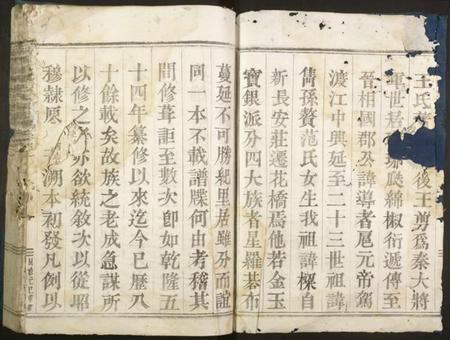 王氏 後王剪為秦大將
軍世居 瓞綿椒衍遞傳至
晉相國郡公諱導者扈元帝駕
渡江中興延至二十三世祖諱
雋孫贅范氏女生我祖諱樑自
新長安莊遷花橋焉他若金玉
寶銀派分四大族者星羅棊布
蔓延不可勝紀里居雖分而誼
同一本不載譜牒何由考稽其
間修葺詎至數次卽如乾隆五
十四年纂修以來迄今已歷八
十餘載矣故族之老成急謀所
以修之 亦欲統敘次以從昭
穆隸愿 溯本初發凡例以